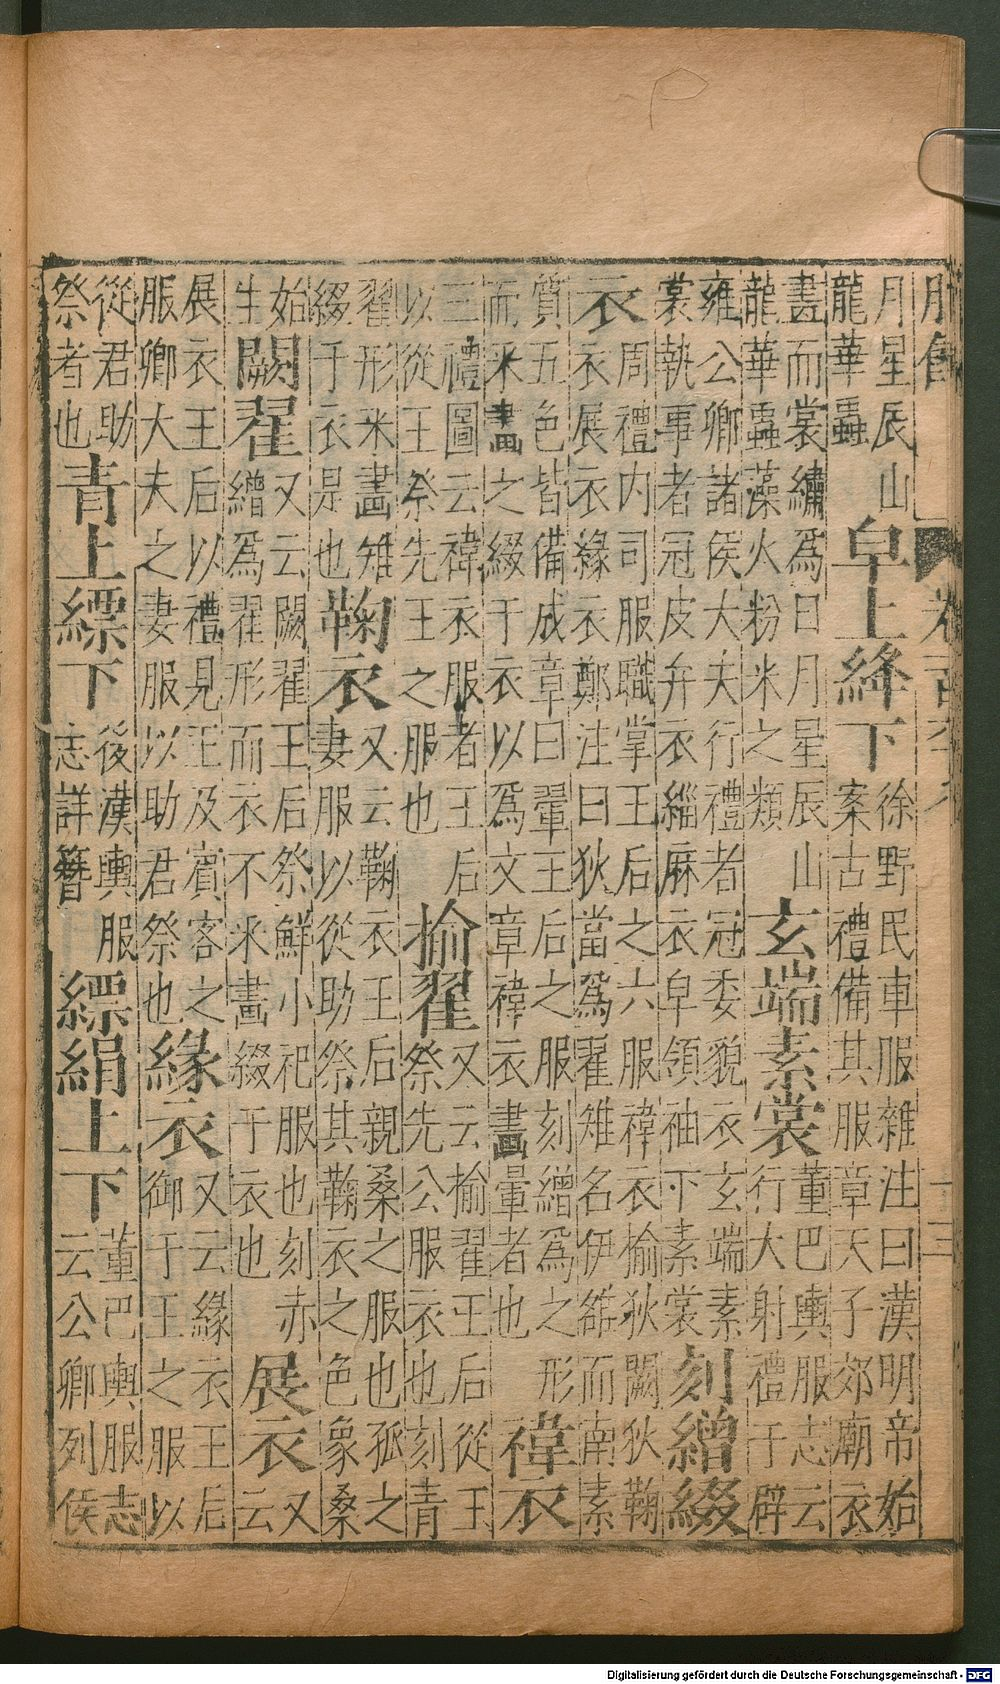 月星辰山
龍華蟲
皁上絳下
徐野民車服雜注曰漢明帝始
案古禮備其服章天子郊廟衣
畫而裳繡爲日月星辰山
龍華蟲藻火粉米之類
玄端素裳
董巴輿服志云
行大射禮于辟
雍公卿諸侯大夫行禮者冠委貌衣玄端素
裳執事者冠皮弁衣緇麻衣皁領袖下素裳
刻繒綴
衣
周禮内司服職掌王后之六服褘衣揄狄闕狄鞠
衣展衣緣衣鄭注曰狄當爲翟雉名伊雒而南素
質五色皆備成章曰翬王后之服刻繒爲之形
而采畫之綴于衣以爲文章褘衣畫翬者也
褘衣
三禮圖云褘衣服者王后
以從王祭先王之服也
揄翟
又云揄翟王后從王
祭先公服衣也刻青
翟形采畫雉
綴于衣是也
鞠衣
又云鞠衣王后親桑之服也孤之
妻服以從助祭其鞠衣之色象桑
始
生
闕翟
又云闕翟王后祭鮮小祀服也刻赤
繒爲翟形而衣不采畫綴于衣也
展衣
又
云
展衣王后以禮見王及賓客之
服卿大夫之妻服以助君祭也
緣衣
又云緣衣王后
御于王之服以
從君助
祭者也
青上縹下
後漢輿服
志詳簪
縹絹上下
董巴輿服志
云公卿列侯
Digitalisierung gefördert durch die Deutsche Forschungsgemeinschaft - DFG